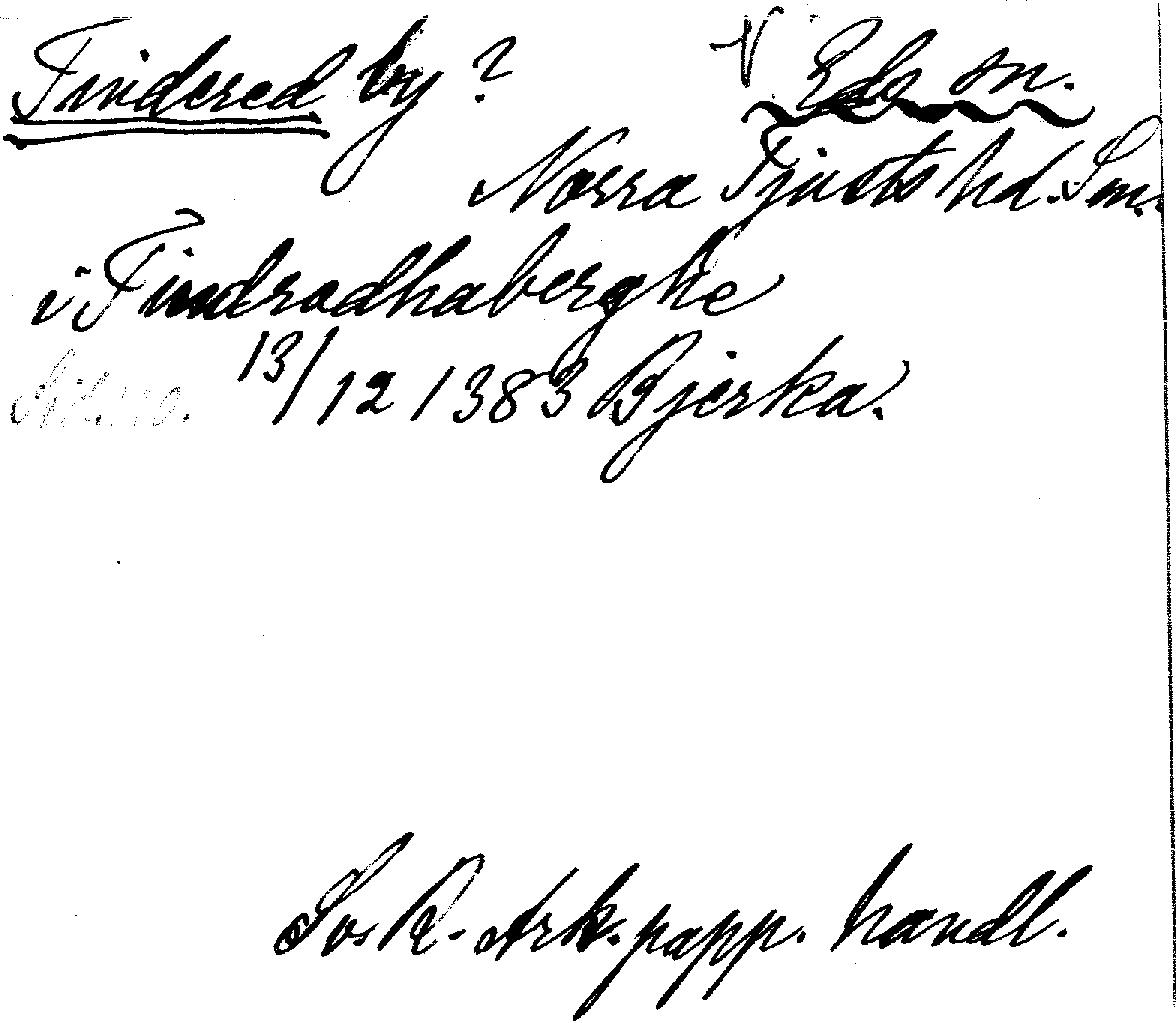 Tindered by? V Eds sn.
Norra Tjusts hd. Sm.
i Tindradhaberghe
13/12 1383 Bjerka.
Sv. R. Ark. papp. handl.